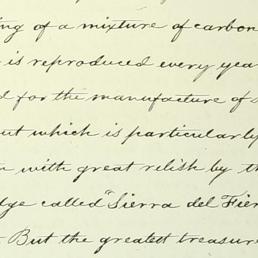 ing of a mixture of carbon
is reproduced every yea
d for the manufacture of
ut which is particularly
with great relish by th
dge called "Sierra del Fier
. But the greatest treasur